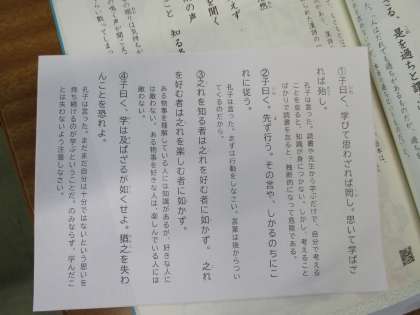 ①子曰く、学びて思わざれば罔し。思いて学ばざ
れば殆し。
孔子は言った。読書や先生から学ぶだけで、自分で考える
ことを怠ると、知識が身につかない。しかし、考えること
ばかりで読書を怠ると、独断的になって危険である。
②子曰く。先ず行う。その言や、しかるのちにこ
れに従う。
孔子は言った。まずは行動をしなさい。言葉は後からつい
てくるのだから。
③之れを知る者は之れを好む者に如かず。之れ
を好む者は之れを楽しむ者に如かず。
ある物事を理解している人には知識があるが、好きな人に
は敵わない。ある物事を好きな人は、楽しんでいる人には
敵わない。
④子曰く、学は及ばざるが如くせよ。猶之を失わ
んことを恐れよ。
孔子は言った。まだまだ自分は十分ではないという思いを
持ち続けるのが学ぶということだ。のみならず、学んだこ
とは失わないよう注意しなさい。